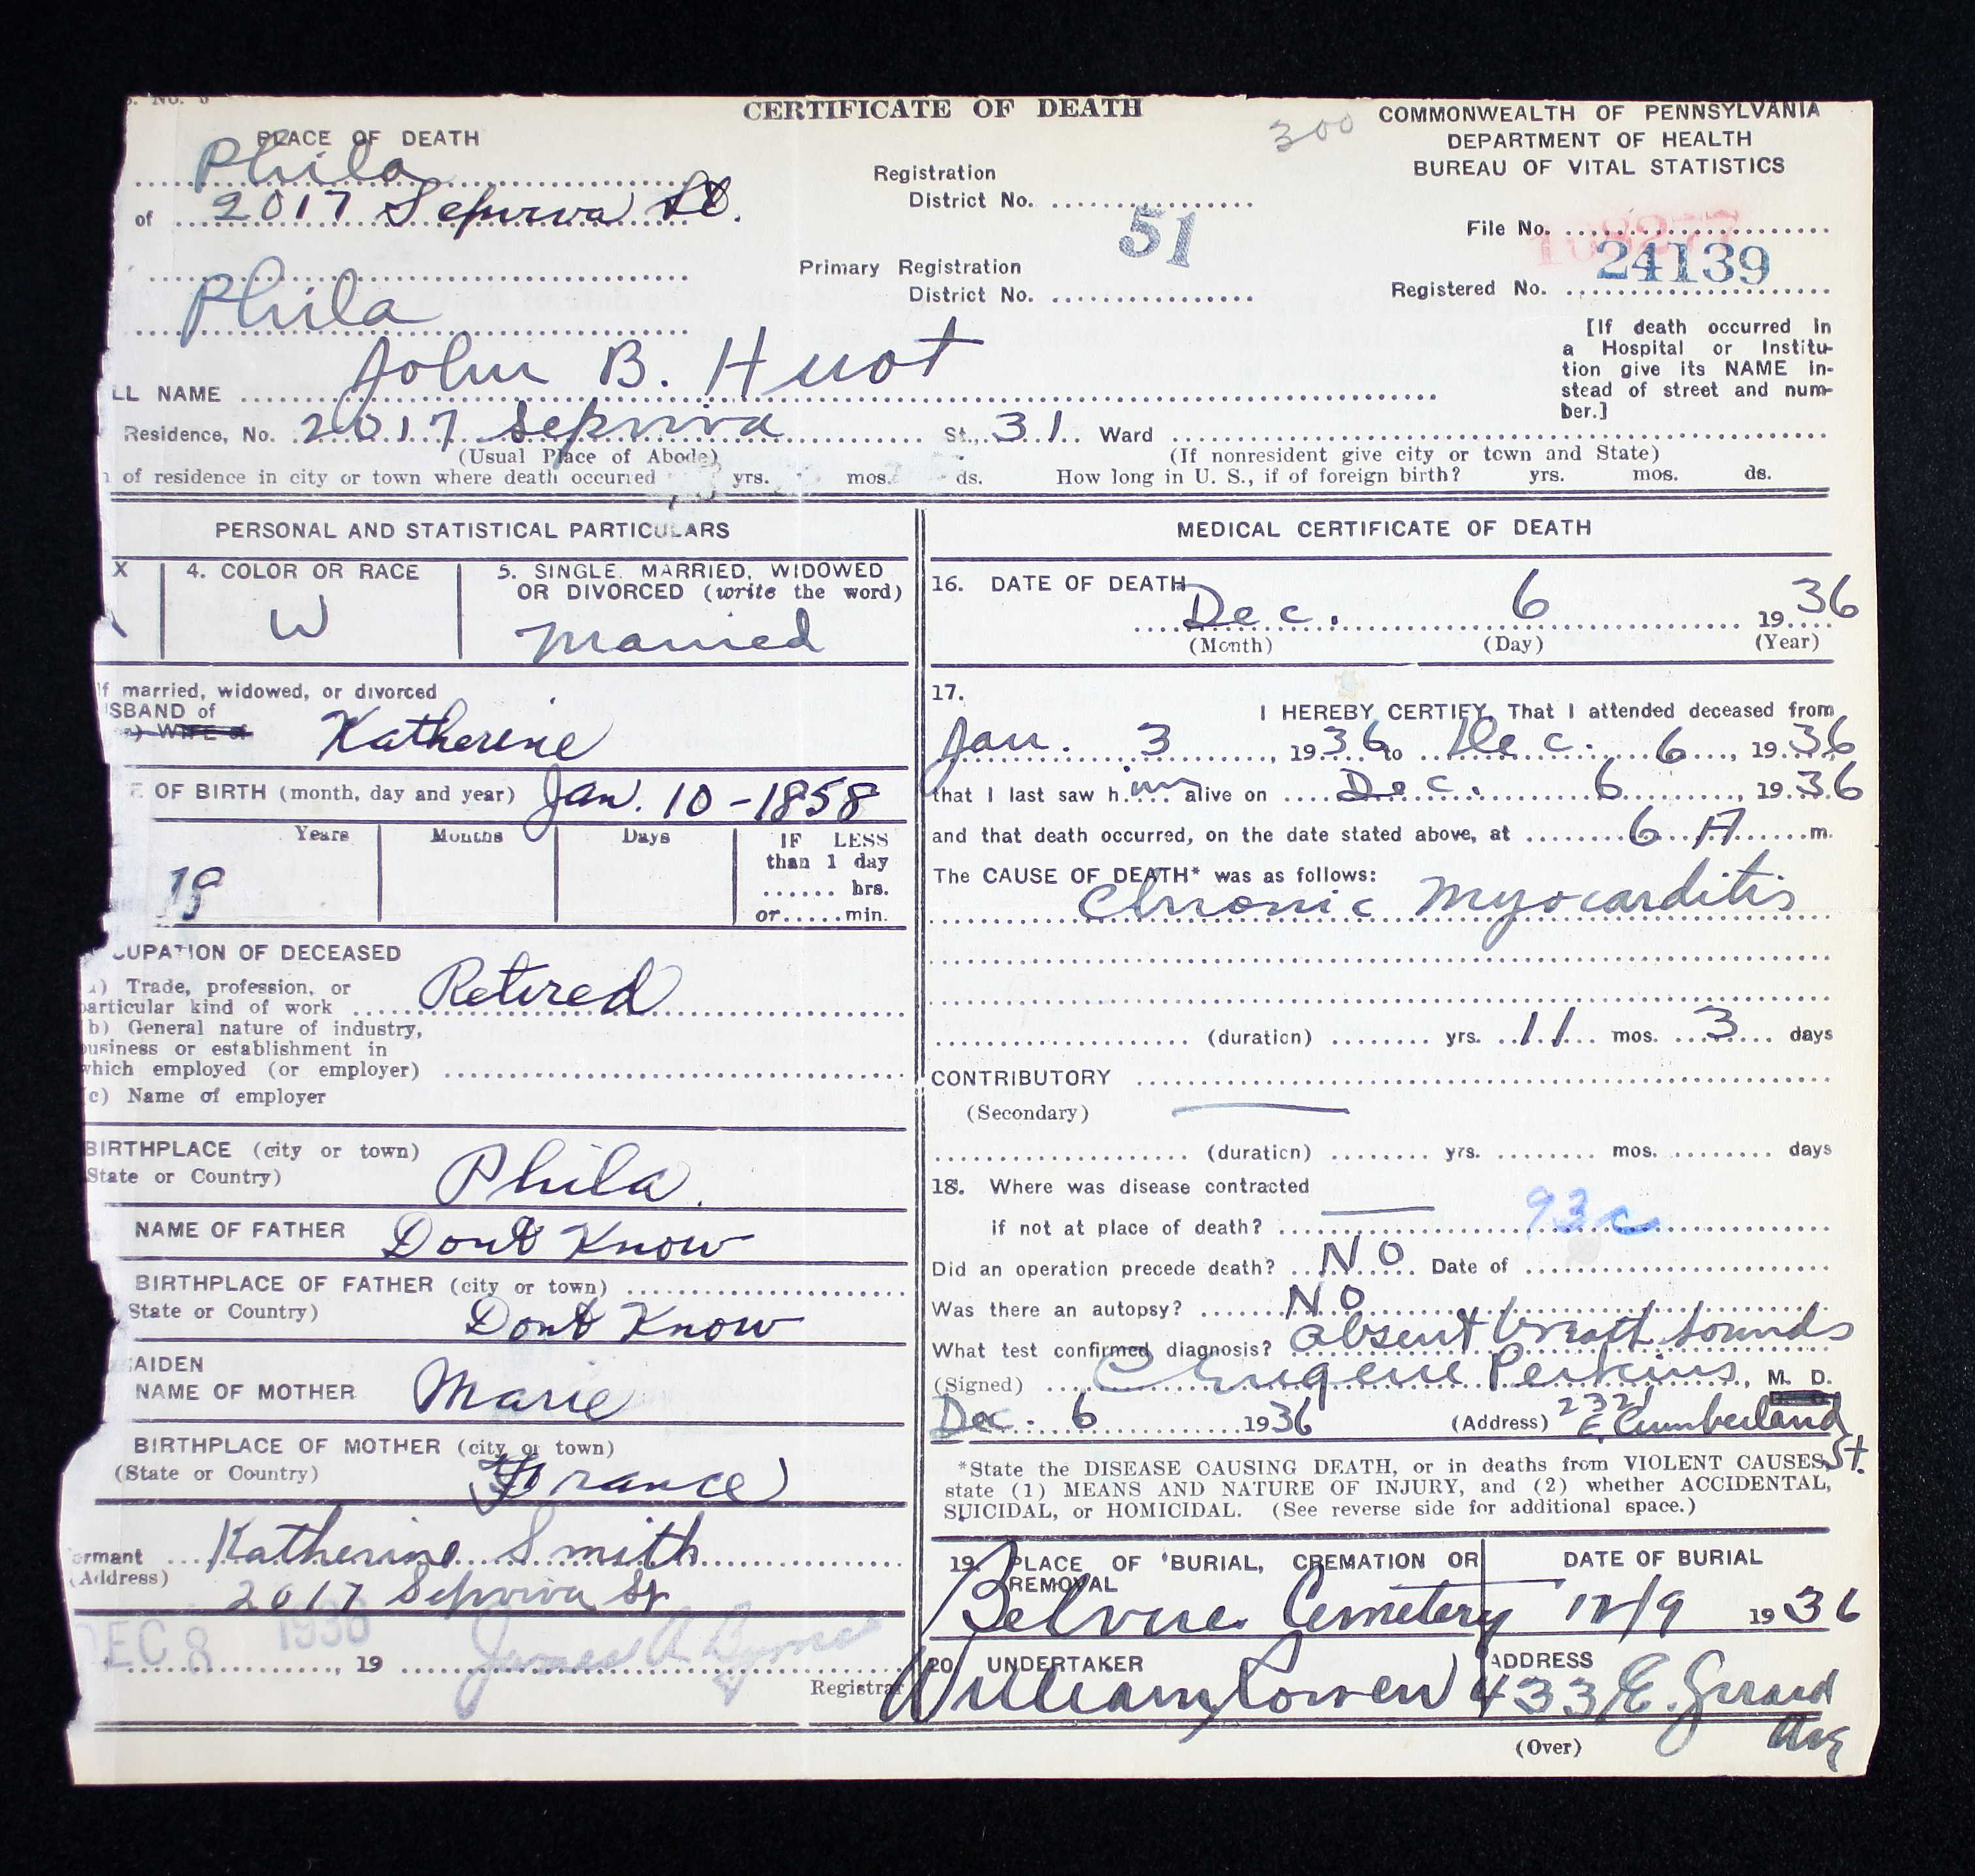 CERTIFICATE OF DEATH
300
COMMONWEALTH OF PENNSYLVANIA
DEPARTMENT OF HEALTH
BUREAU OF VITAL STATISTICS
PLACE OF DEATH
Phila
of 2017 Sepviva St.
Phila
Registration
District No.
51
Primary Registration
District No.
File No.
24139
Registered No.
[If death occurred in
a Hospital or Institu-
tion give its NAME in-
stead of street and num-
ber.]
LL NAME John B. Huot
Residence, No. 2017 Sepviva St., 31 Ward
(Usual Place of Abode) (If nonresident give city or town and State)
of residence in city or town where death occurred yrs. mos. ds. How long in U. S., if of foreign birth? yrs. mos. ds.
PERSONAL AND STATISTICAL PARTICULARS
X
4. COLOR OR RACE
W
5. SINGLE, MARRIED, WIDOWED
OR DIVORCED (write the word)
Married
If married, widowed, or divorced
SBAND of
WIFE of
Katherine
OF BIRTH (month, day and year) Jan. 10-1858
Years Months Days IF LESS
than 1 day
hrs.
or min.
UPATION OF DECEASED
) Trade, profession, or
particular kind of work Retired
b) General nature of industry,
business or establishment in
which employed (or employer)
c) Name of employer
BIRTHPLACE (city or town)
State or Country) Phila.
NAME OF FATHER Dont Know
BIRTHPLACE OF FATHER (city or town)
State or Country) Dont Know
AIDEN
NAME OF MOTHER Marie
BIRTHPLACE OF MOTHER (city or town)
(State or Country) France
ormant Katherine Smith
(Address) 2017 Sepviva St
DEC 8 1936
, 19 James A Byrne
Registrar
MEDICAL CERTIFICATE OF DEATH
16. DATE OF DEATH
Dec. 6 1936
(Month) (Day) (Year)
17.
I HEREBY CERTIFY, That I attended deceased from
Jan. 3, 1936 to Dec. 6, 1936
that I last saw him alive on Dec. 6, 1936
and that death occurred, on the date stated above, at 6 A m.
The CAUSE OF DEATH* was as follows:
Chronic Myocarditis
(duration) yrs. 11 mos. 3 days
CONTRIBUTORY
(Secondary)
(duration) yrs. mos. days
18. Where was disease contracted
if not at place of death? 93c
Did an operation precede death? NO Date of
Was there an autopsy? NO
What test confirmed diagnosis? absent breath sounds
(Signed) C Eugene Perkins, M. D.
Dec. 6 1936 (Address) 2321 E. Cumberland St.
*State the DISEASE CAUSING DEATH, or in deaths from VIOLENT CAUSES,
state (1) MEANS AND NATURE OF INJURY, and (2) whether ACCIDENTAL,
SUICIDAL, or HOMICIDAL. (See reverse side for additional space.)
19. PLACE OF BURIAL, CREMATION OR
REMOVAL
Belvue Cemetery
DATE OF BURIAL
12/9 1936
20. UNDERTAKER
William Rowen
ADDRESS
433 E. Girard
Ave
(Over)